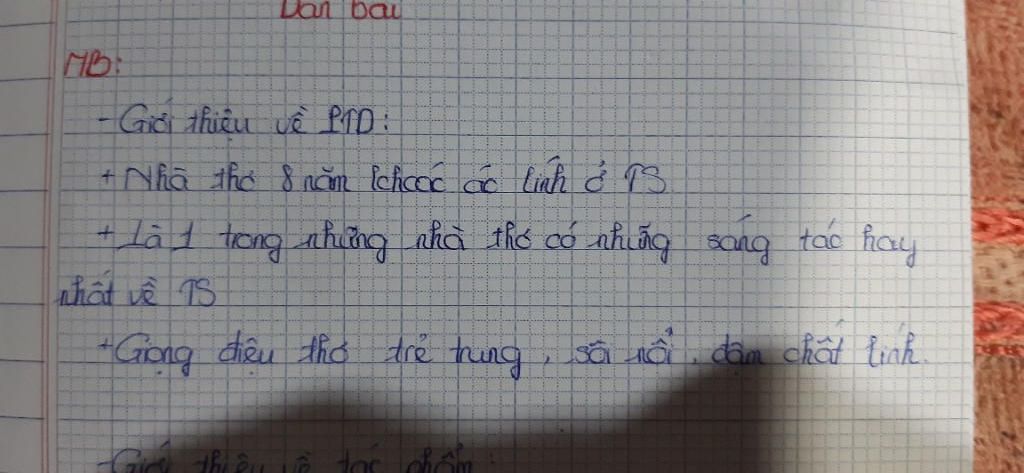 Dàn bài
MB:
- Giới thiệu về PTD:
+ Nhà thơ 8 năm khoác áo lính ở TS
+ Là 1 trong những nhà thơ có những sáng tác hay
nhất về TS
+ Giọng điệu thơ trẻ trung, sôi nổi, đậm chất lính.
- Giới thiệu về tác phẩm: